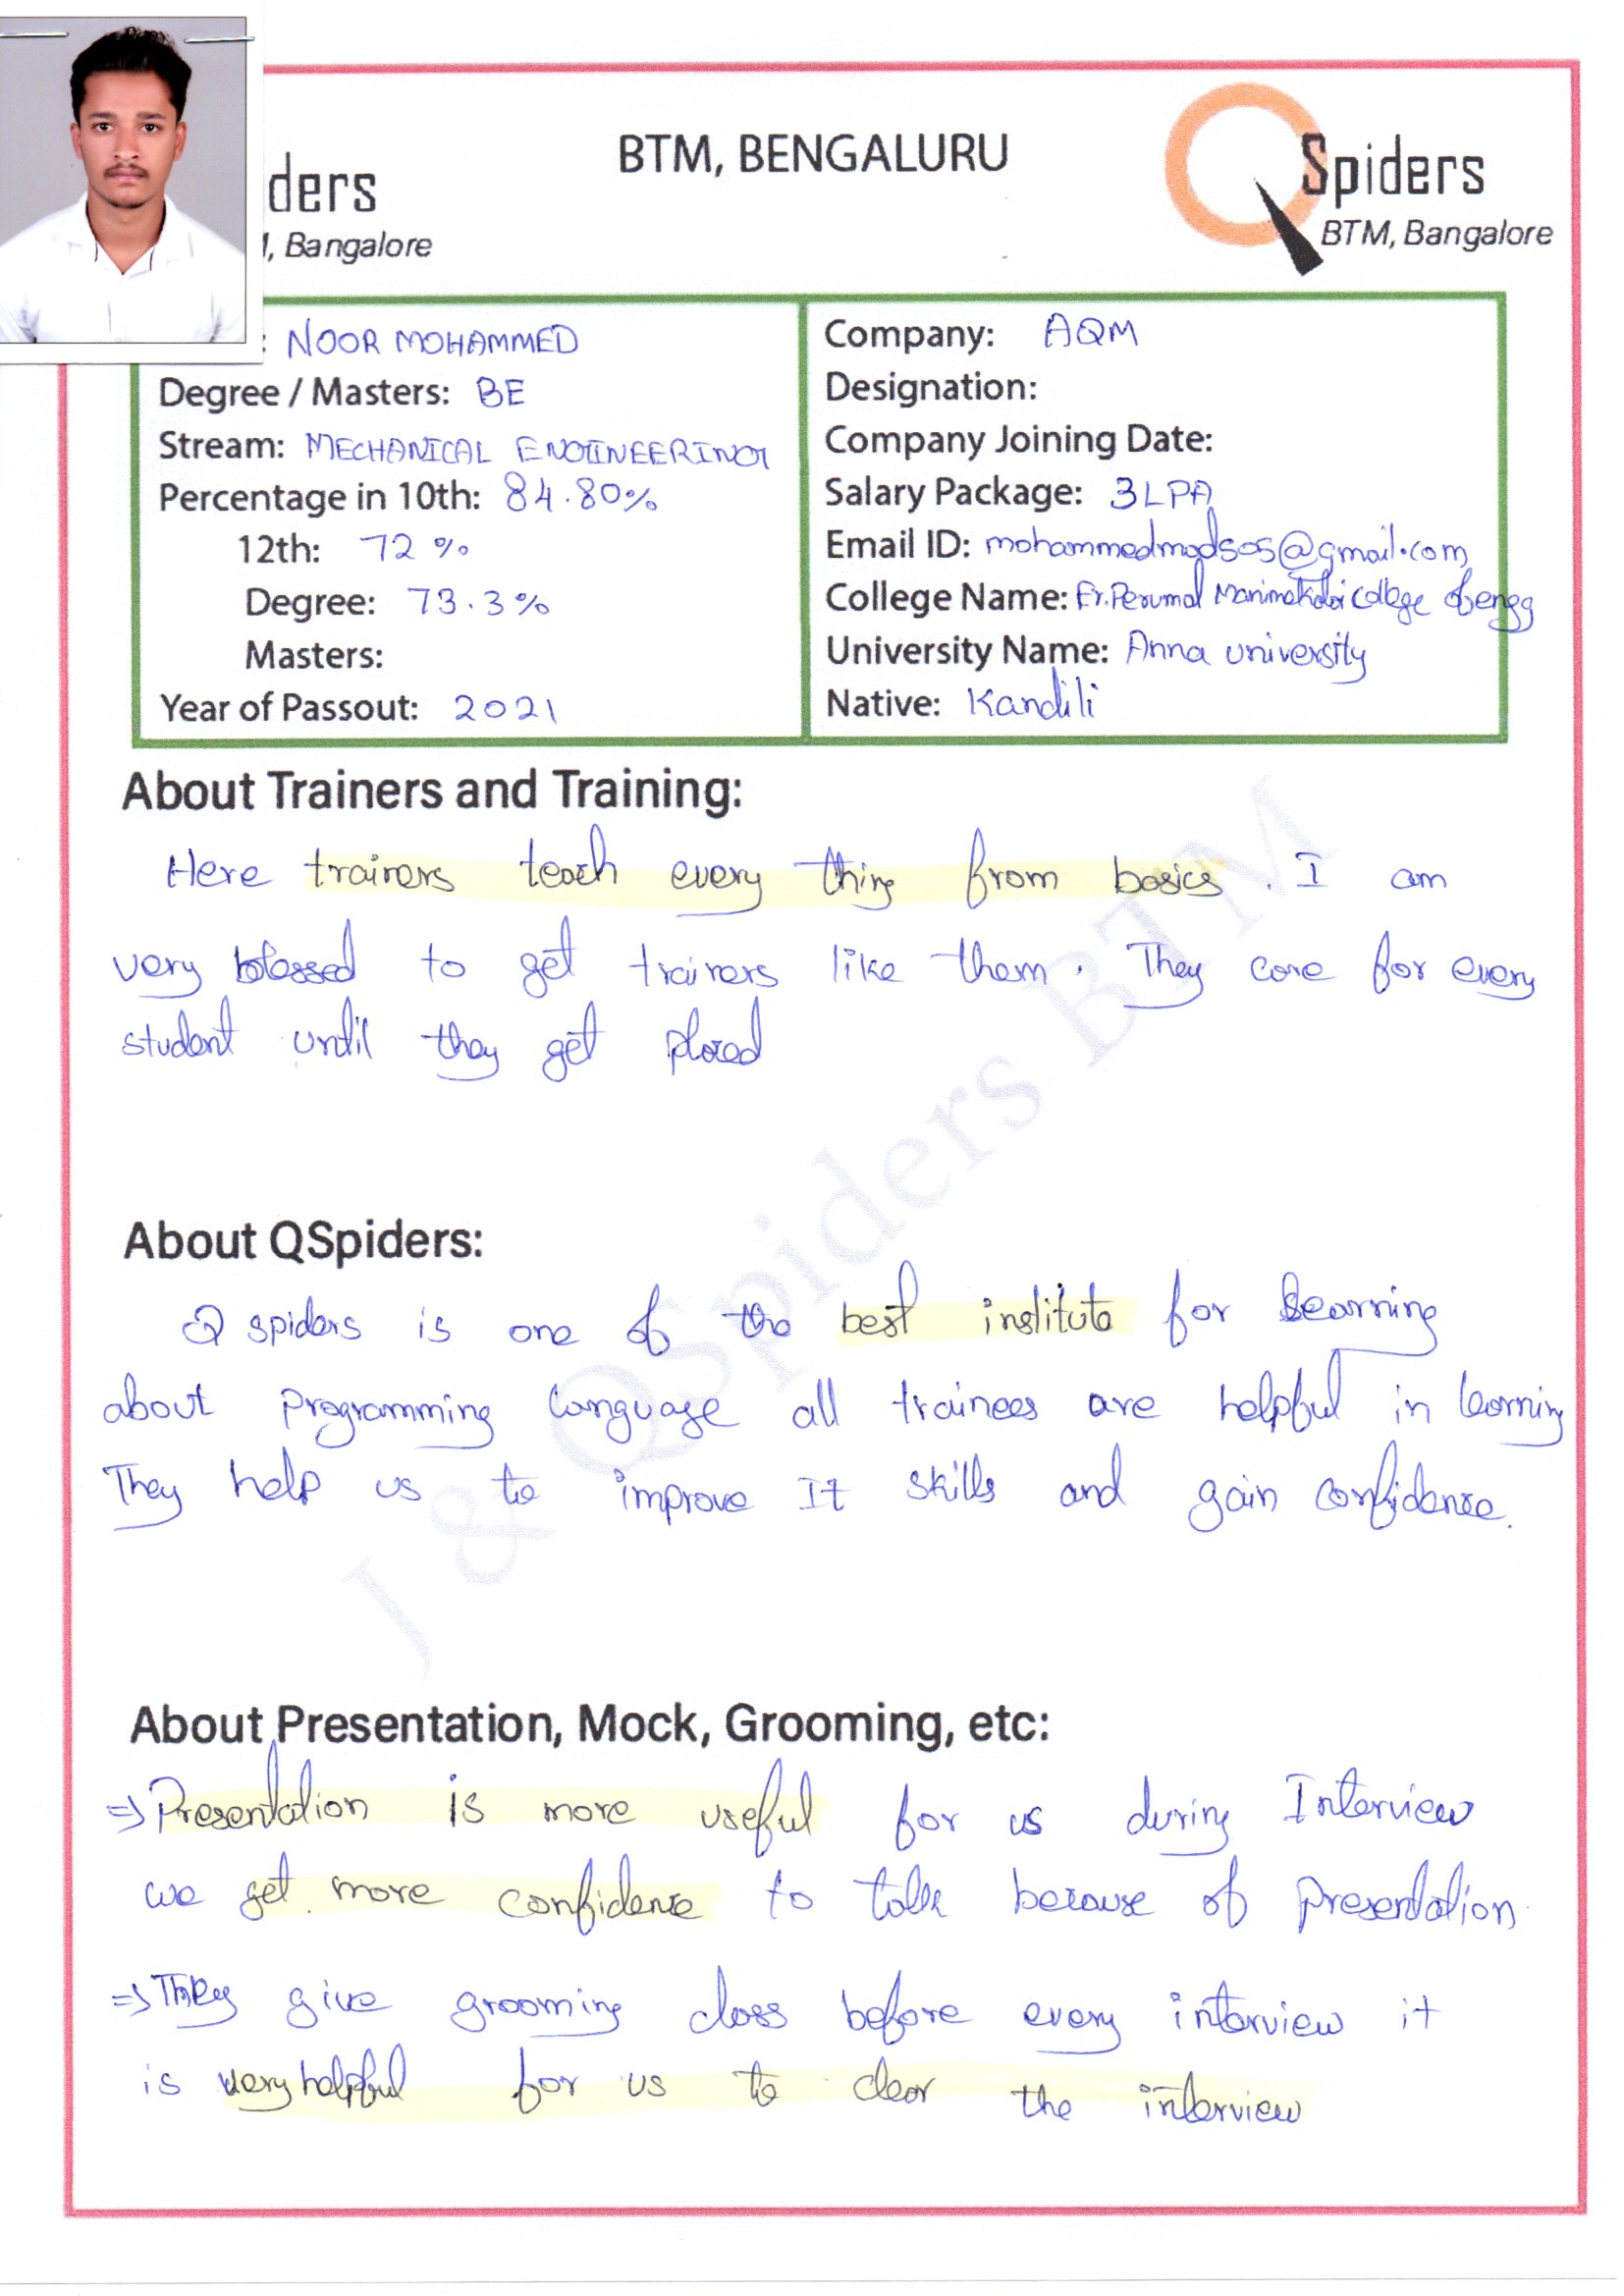 BTM, BENGALURU
ders
, Bangalore
Spiders
BTM, Bangalore
: NOOR MOHAMMED
Degree / Masters: BE
Stream: MECHANICAL ENGINEERING
Percentage in 10th: 84.80%
12th: 72 %
Degree: 73.3%
Masters:
Year of Passout: 2021
Company: AQM
Designation:
Company Joining Date:
Salary Package: 3LPA
Email ID: @gmail.com
College Name: Er.Perumal Manimekalai College of engg
University Name: Anna university
Native: Kandili
About Trainers and Training:
Here trainers teach every thing from basics. I am
very blessed to get trainers like them. They care for every
student until they get placed
About QSpiders:
Q spiders is one of the best institute for learning
about programming language all trainees are helpful in learning
They help us to improve IT skills and gain confidence.
About Presentation, Mock, Grooming, etc:
=> Presentation is more useful for us during Interview
we get more confidence to talk because of presentation
=> They give grooming class before every interview it
is very helpful for us to clear the interview
J & QSpiders BTM